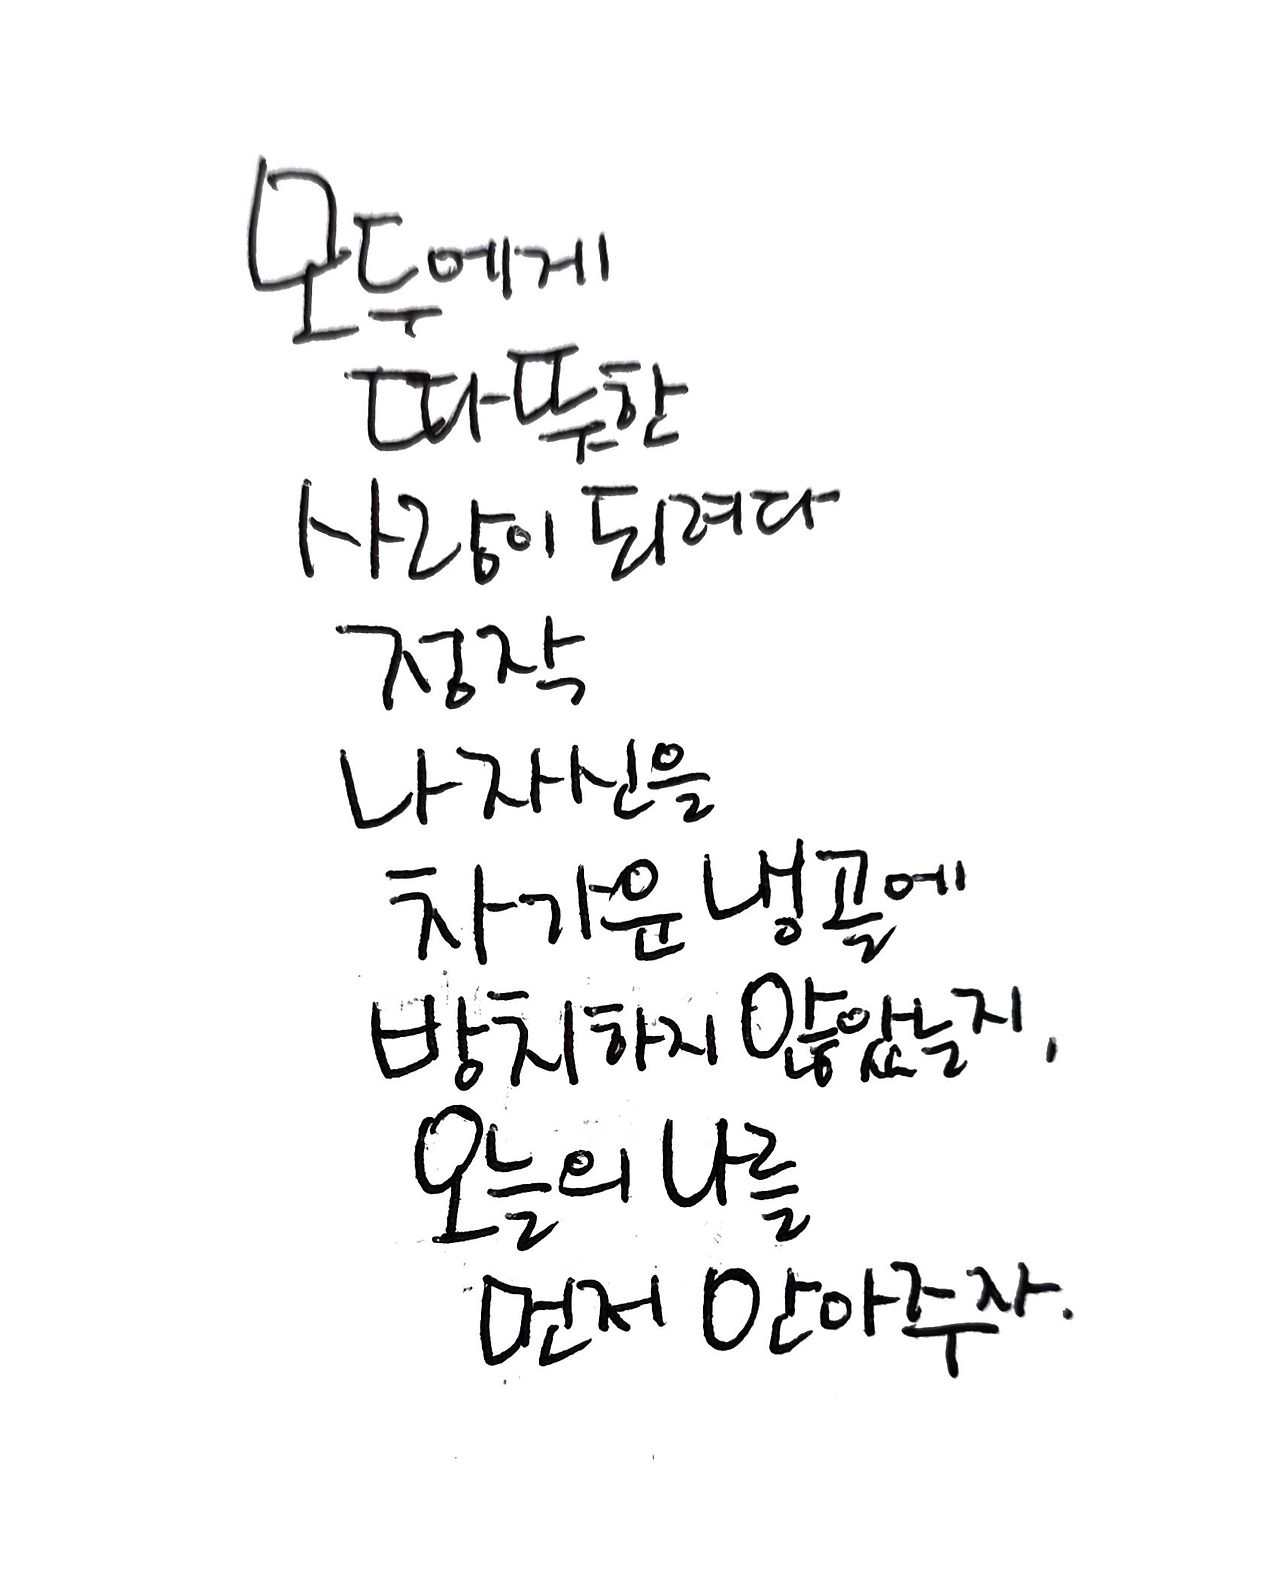 모두에게
따뜻한
사랑이 되려다
정작
나 자신을
차가운 냉골에
방치하지 않았는지,
오늘의 나를
먼저 안아주자.